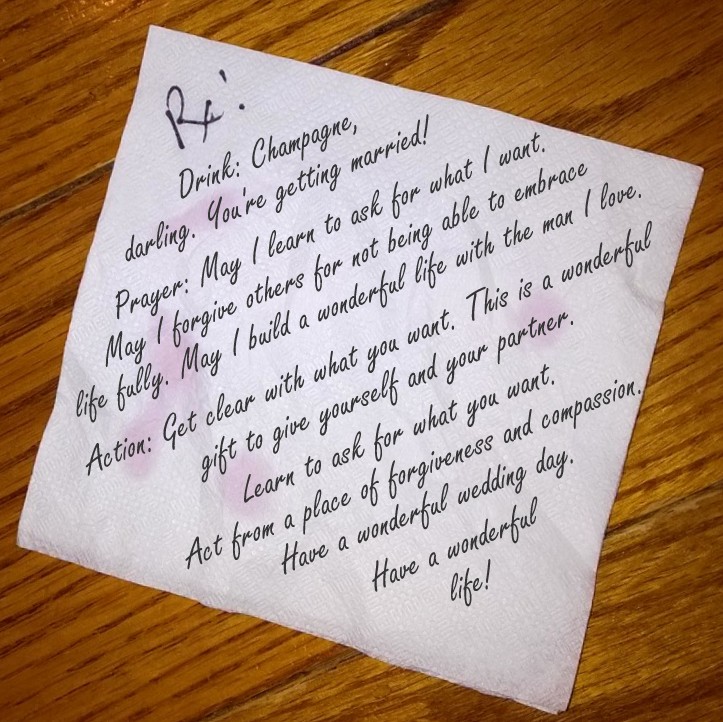 Rx!
Drink: Champagne,
darling. You're getting married!
Prayer: May I learn to ask for what I want.
May I forgive others for not being able to embrace
life fully. May I build a wonderful life with the man I love.
Action: Get clear with what you want. This is a wonderful
gift to give yourself and your partner.
Learn to ask for what you want.
Act from a place of forgiveness and compassion.
Have a wonderful wedding day.
Have a wonderful
life!